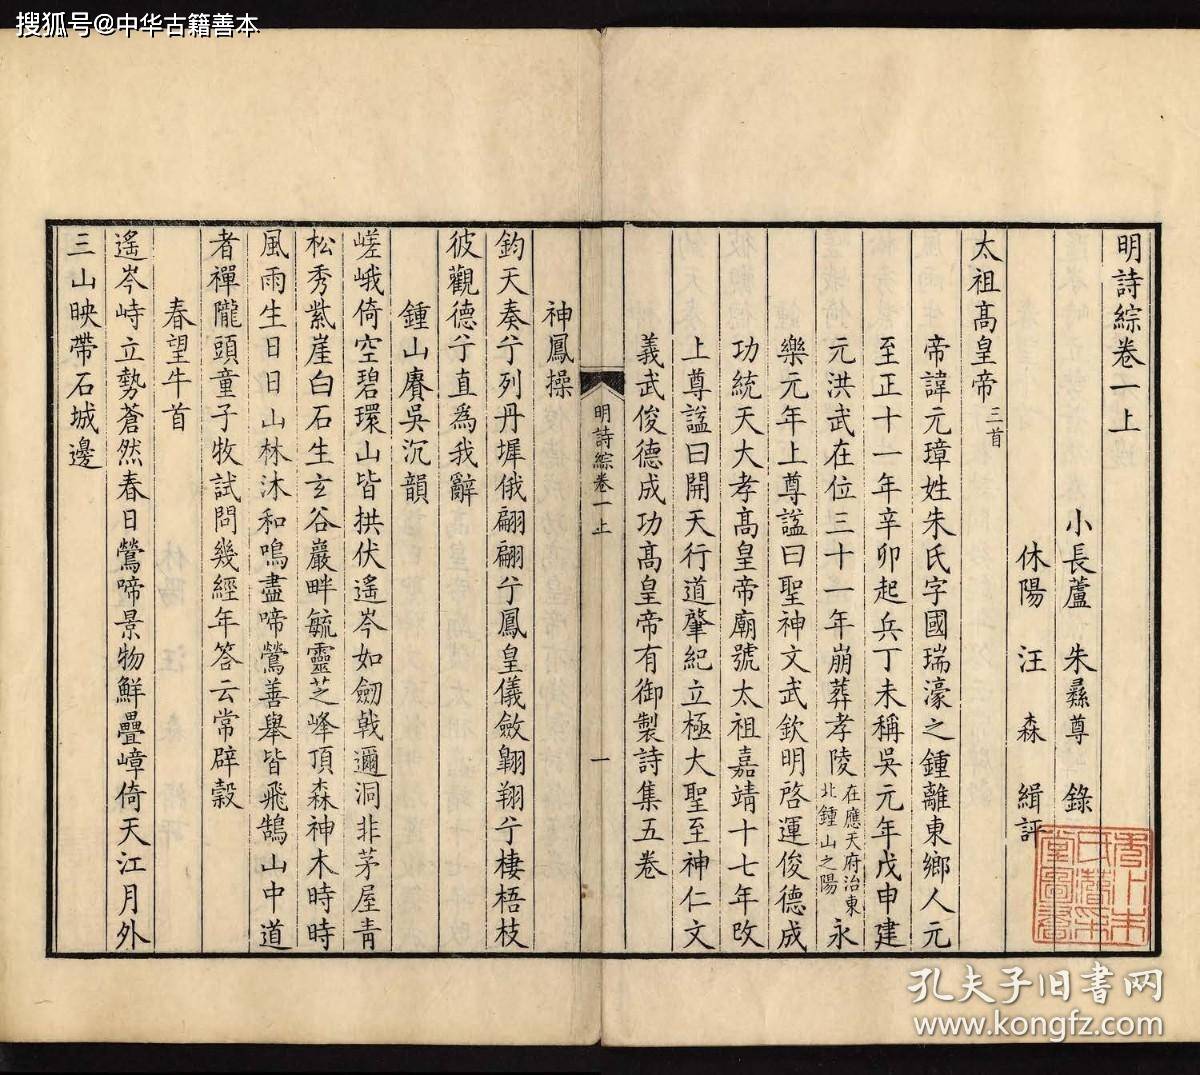 搜狐号@中华古籍善本
明詩綜卷一上
小長蘆 朱彝尊 錄
休陽 汪森 緝評
太祖高皇帝 三首
帝諱元璋姓朱氏字國瑞濠之鍾離東鄉人元
至正十一年辛卯起兵丁未稱吳元年戊申建
元洪武在位三十一年崩葬孝陵 在應天府治東北鍾山之陽 永
樂元年上尊謚曰聖神文武欽明啓運俊德成
功統天大孝高皇帝廟號太祖嘉靖十七年改
上尊謚曰開天行道肇紀立極大聖至神仁文
義武俊德成功高皇帝有御製詩集五卷
明詩綜卷一上
一
神鳳操
鈞天奏兮列丹墀俄翩翩兮鳳皇儀斂翺翔兮棲梧枝
彼觀德兮直爲我辭
鍾山賡吳沉韻
嵯峨倚空碧環山皆拱伏遙岑如劒戟邇洞非茅屋青
松秀紫崖白石生玄谷巖畔毓靈芝峰頂森神木時時
風雨生日日山林沐和鳴盡啼鶯善舉皆飛鵠山中道
者禪隴頭童子牧試問幾經年答云常辟穀
春望牛首
遙岑峙立勢蒼然春日鶯啼景物鮮疊嶂倚天江月外
三山映帶石城邊
孔夫子旧书网
www.kongfz.com